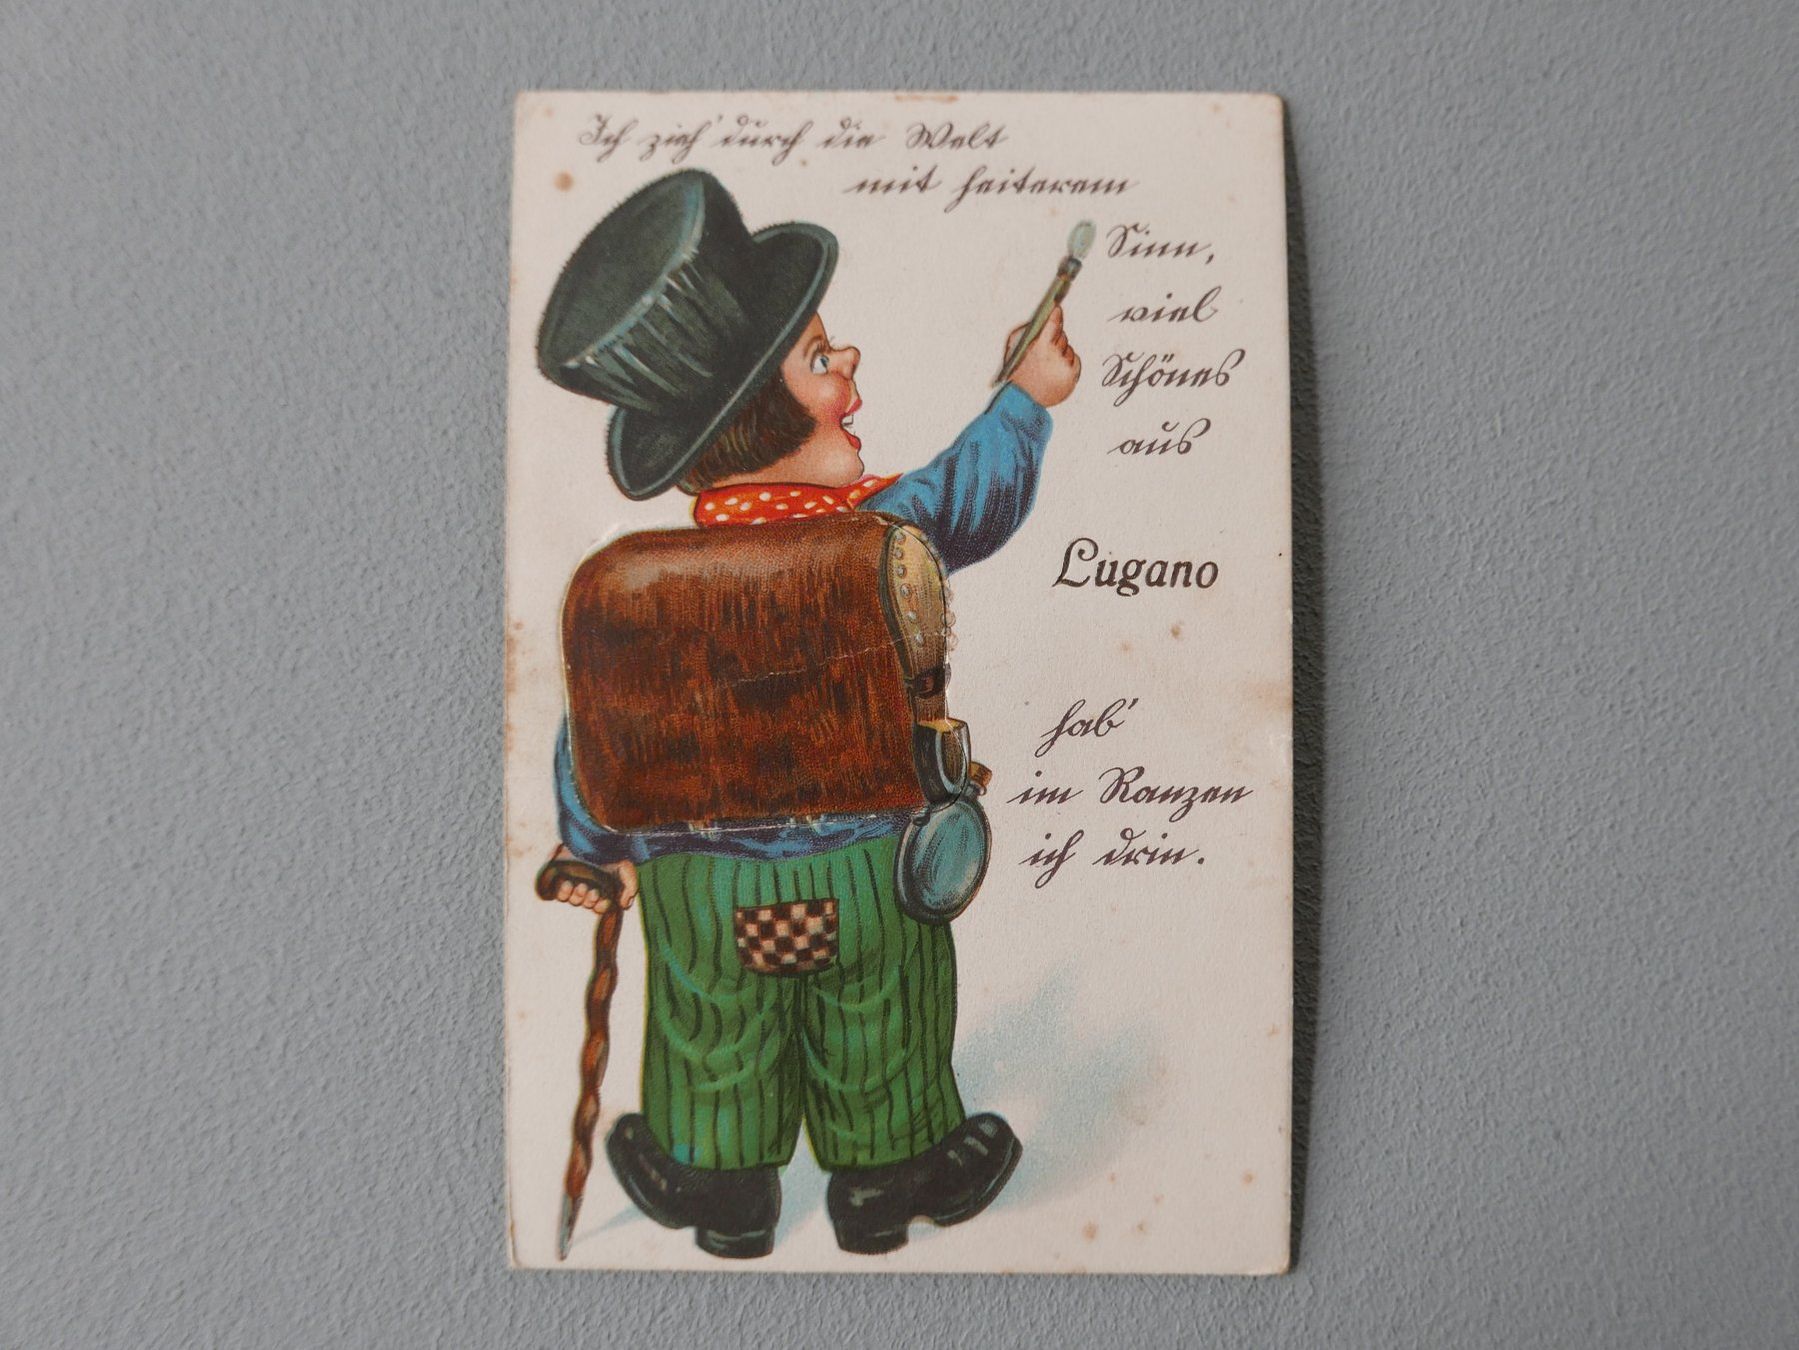 Ich zieh' durch die Welt
mit heiterem
Sinn,
viel
Schönes
aus
Lugano
hab'
im Ranzen
ich drin.